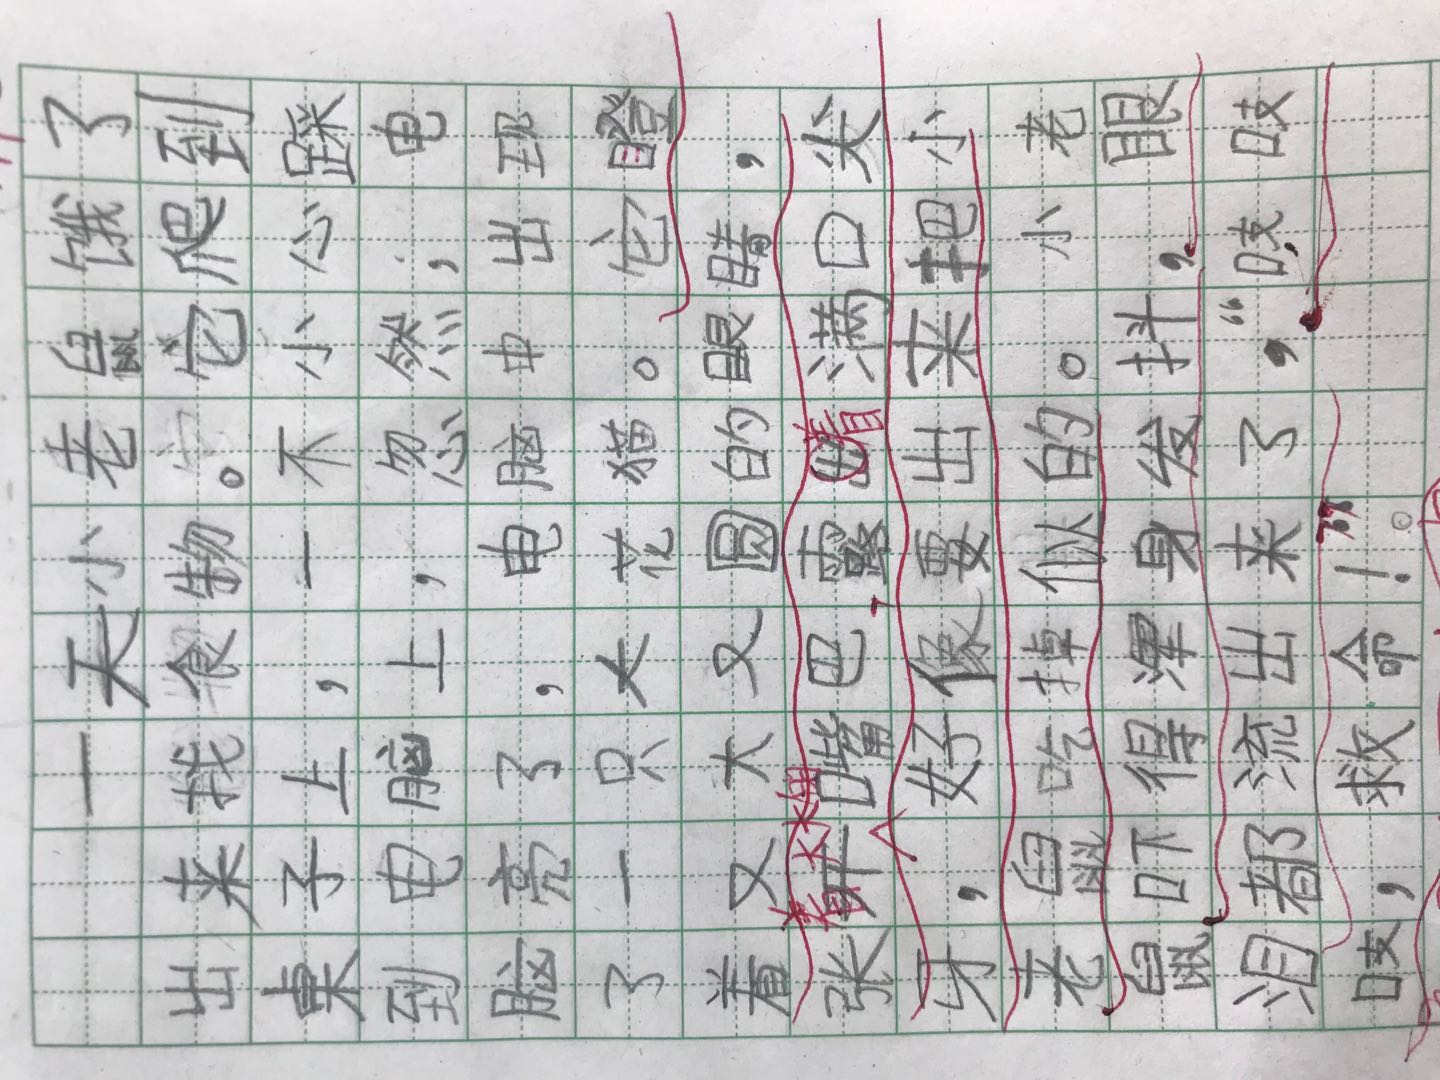 一天小老鼠饿了
出来找食物。它爬到
桌子上,一不小心踩
到电脑上,忽然,电
脑亮了,电脑中出现
了一只大花猫。它瞪
着又大又圆的眼睛,
张开嘴巴露出满口尖
牙,好像要出来把小
老鼠吃掉似的。小老
鼠吓得浑身发抖,眼
泪都流出来了,“吱吱
吱,救命!”。